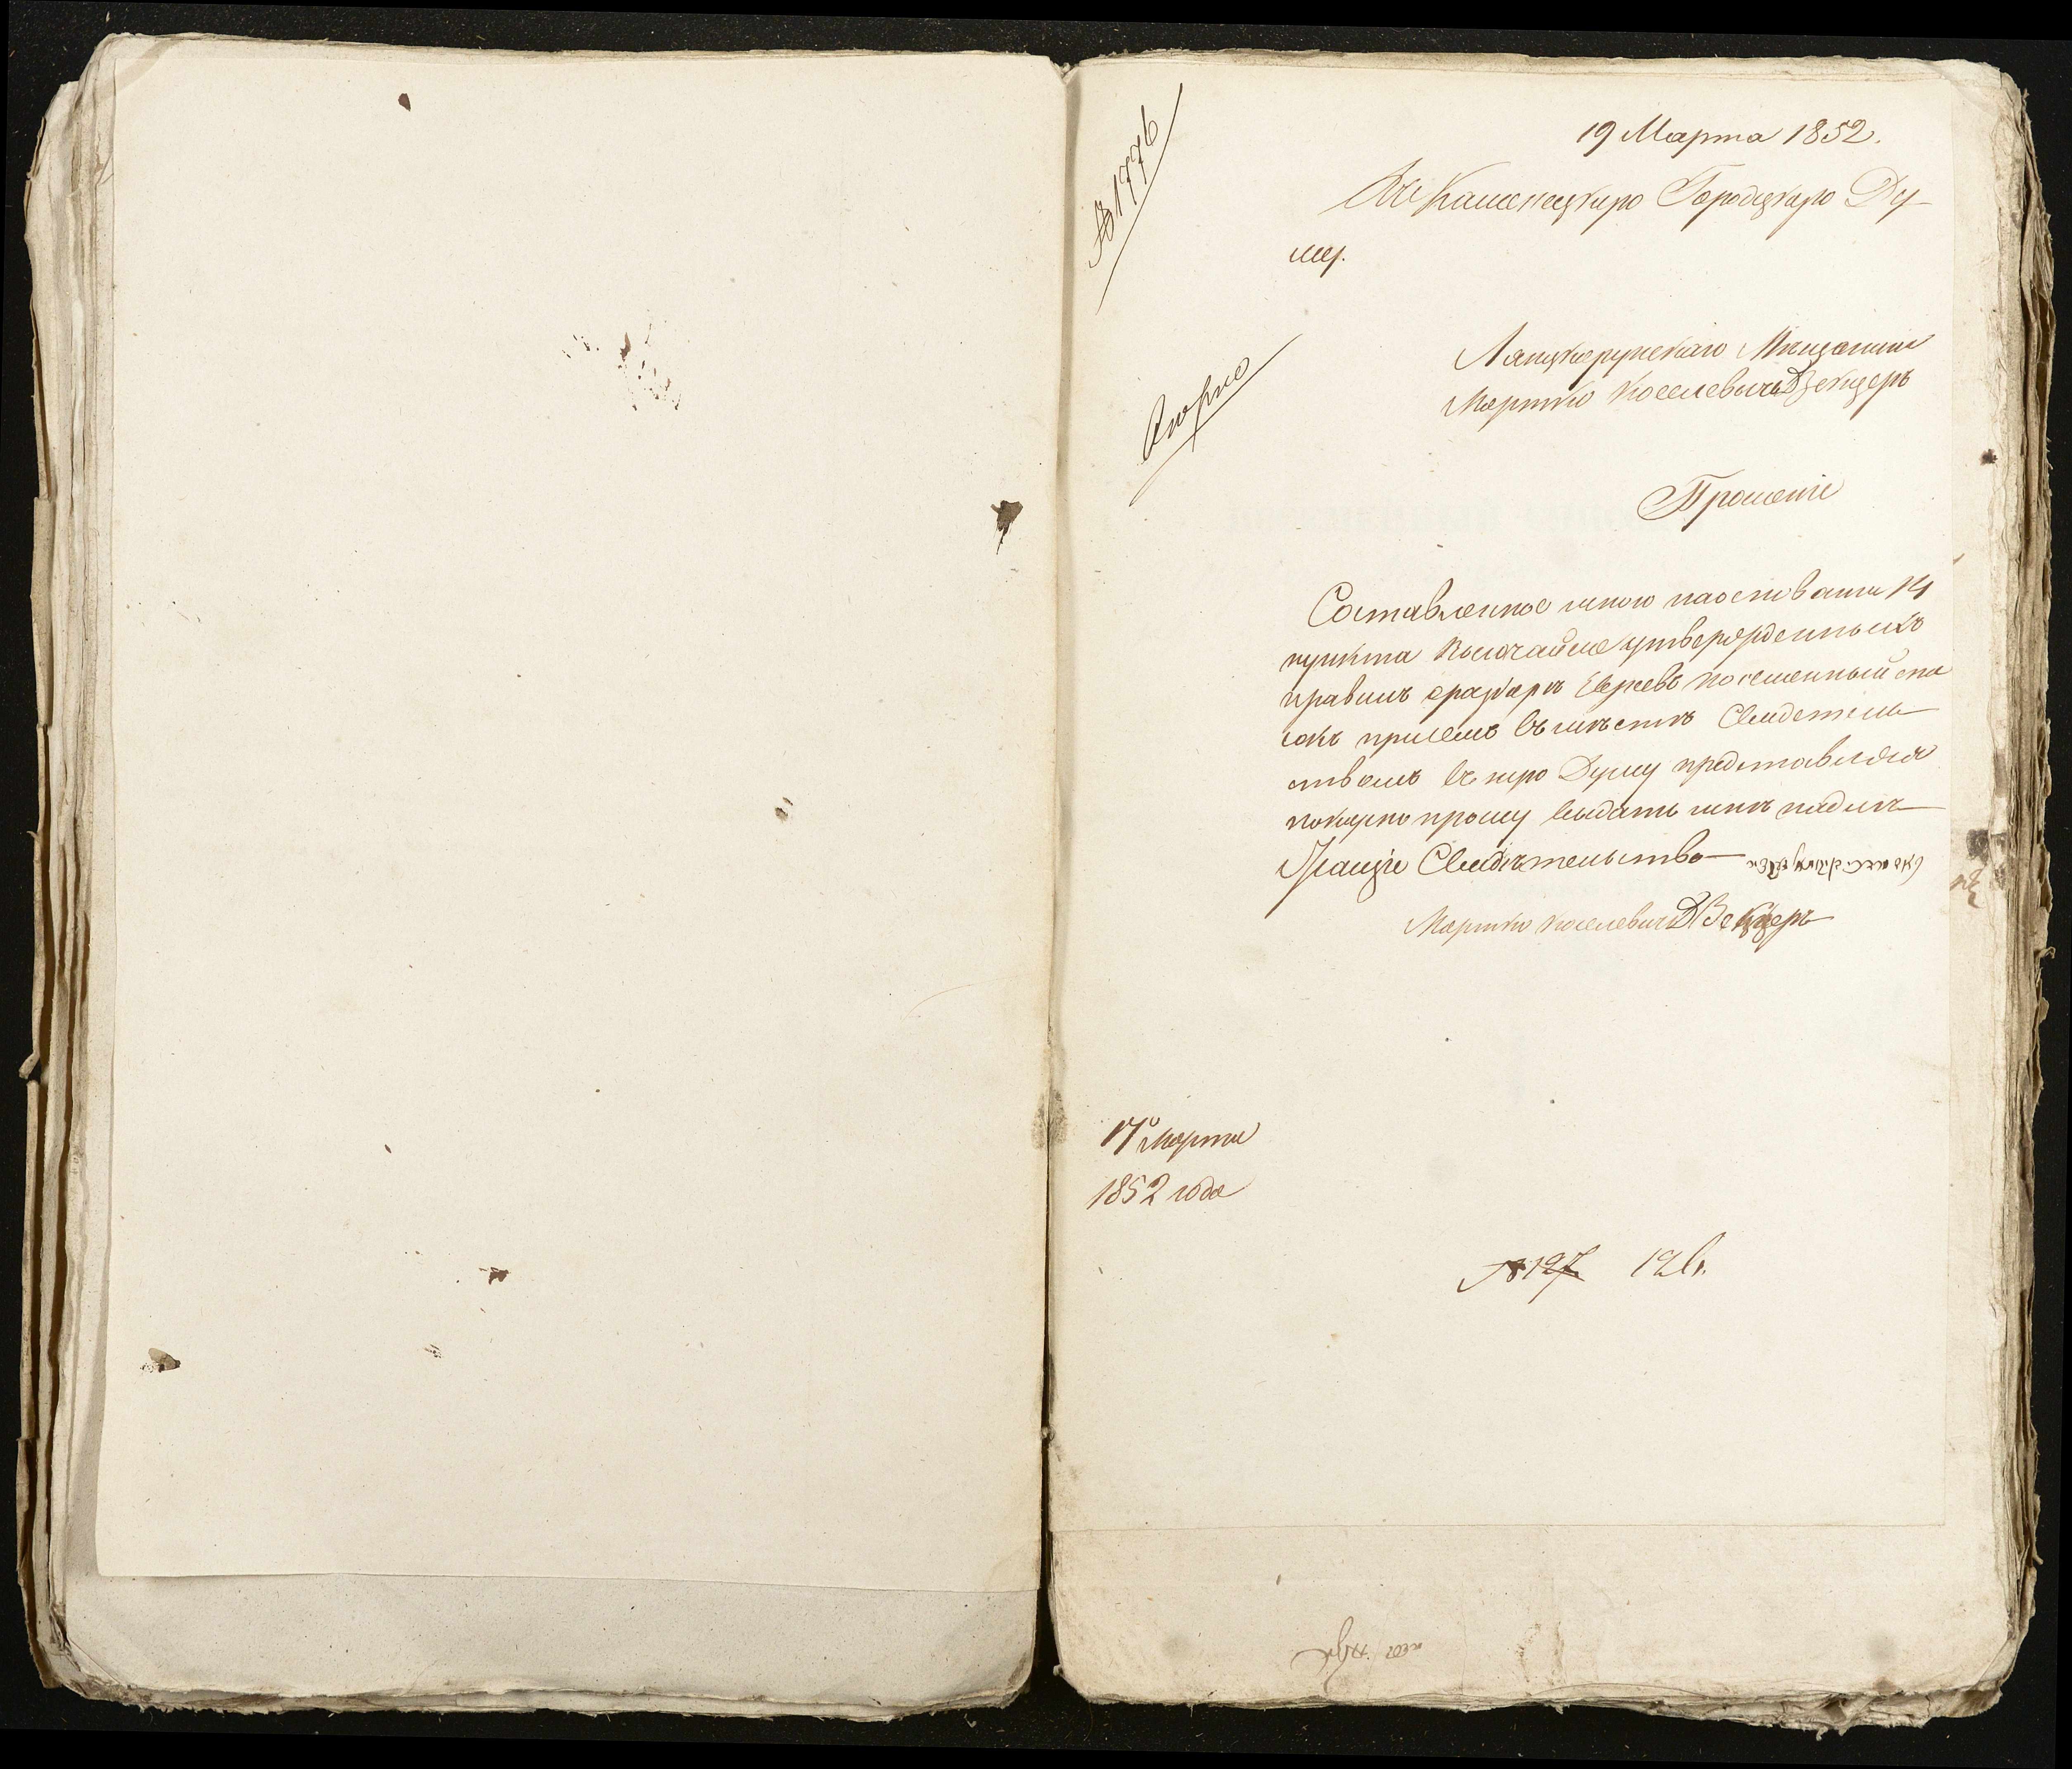 № 1776
19 Марта 1852.
Въ Каменецкую Городскую Ду-
му.
Лянцкорунскаго Мещанина
Мортко Іоселевича Векцеръ
Прошеніе
Составленное мною наосновании 14
пункта Высочайше утвержденныхъ
правилъ оразборѣ Евреевъ посемейный спи
сокъ присемъ въмѣстѣ Свидетель
ствомъ въ ную Думу представляя
покорно прошу выдать мнѣ надле
жащіе Свидѣтельство
Мортко Іоселевичъ Векцеръ
17º Марта
1852 года
№ 127 12 в.